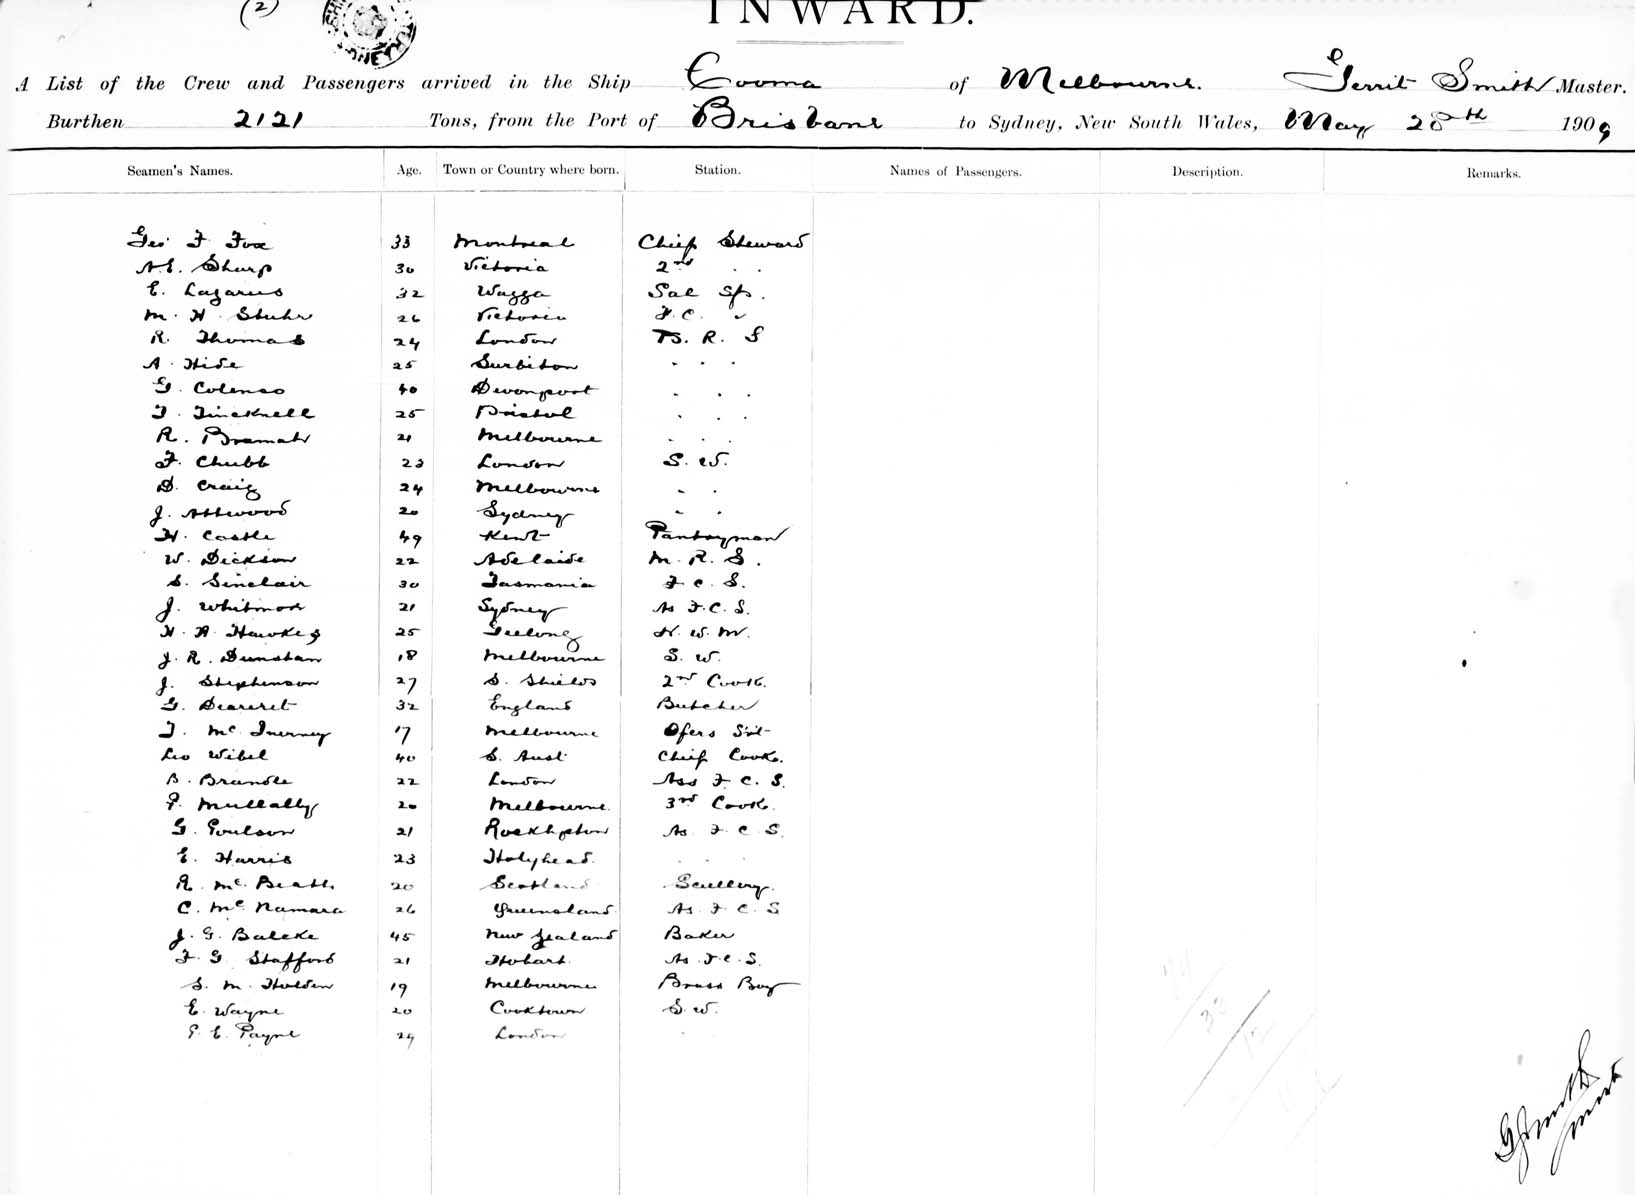 (2)
INWARD.
A List of the Crew and Passengers arrived in the Ship Cooma of Melbourne. Gerrit Smith Master.
Burthen 2121 Tons, from the Port of Brisbane to Sydney, New South Wales, May 28th 1909
Seamen's Names. Age. Town or Country where born. Station. Names of Passengers. Description. Remarks.
Geo F Fox 33 Montreal Chief Steward
A.E. Sharp 30 Victoria 2nd " "
E. Lazarus 32 Wagga Sal
M. H. Stuhr 26 Victoria F.C. "
R. Thomas 24 London B. R. S
A. Hide 25 Surbiton " " "
G. Colenso 40 Devonport " " "
T. Tincknell 25 Bristol " " "
R. Bramah 21 Melbourne " " "
F. Chubb 23 London S. W.
D. Craig 24 Melbourne " "
J. Attwood 20 Sydney " "
H. Castle 49 Kent Pantryman
W. Dickson 22 Adelaide M. R. S.
S. Sinclair 30 Tasmania F. C. S.
J. Whitmore 21 Sydney As F.C. S.
H. A. Hawkes 25 Geelong N. W. M.
J. R. Dunstan 18 Melbourne S. W.
J. Stephenson 27 S. Shields 2nd Cook.
G. 32 England Butcher
T. McInerney 17 Melbourne Ofers
Leo Wibel 40 S. Aust Chief Cook.
B. Brandle 22 London Ass F. C. S.
P. Mullally 20 Melbourne. 3rd Cook.
G. Poulson 21 Rockhpton As F C S.
E. Harris 23 Holyhead. " " "
R. McBeath. 20 Scotland Scullery.
C. McNamara 26 Queensland. As F C S
J. G. Balcke 45 New Zealand Baker
F G Stafford 21 Hobart. As F.C.S.
S. M. Holden 19 Melbourne Brass Boy
E. Wayne 20 Cooktown S. W.
P. E. Payne 29 London "
33
G Smith